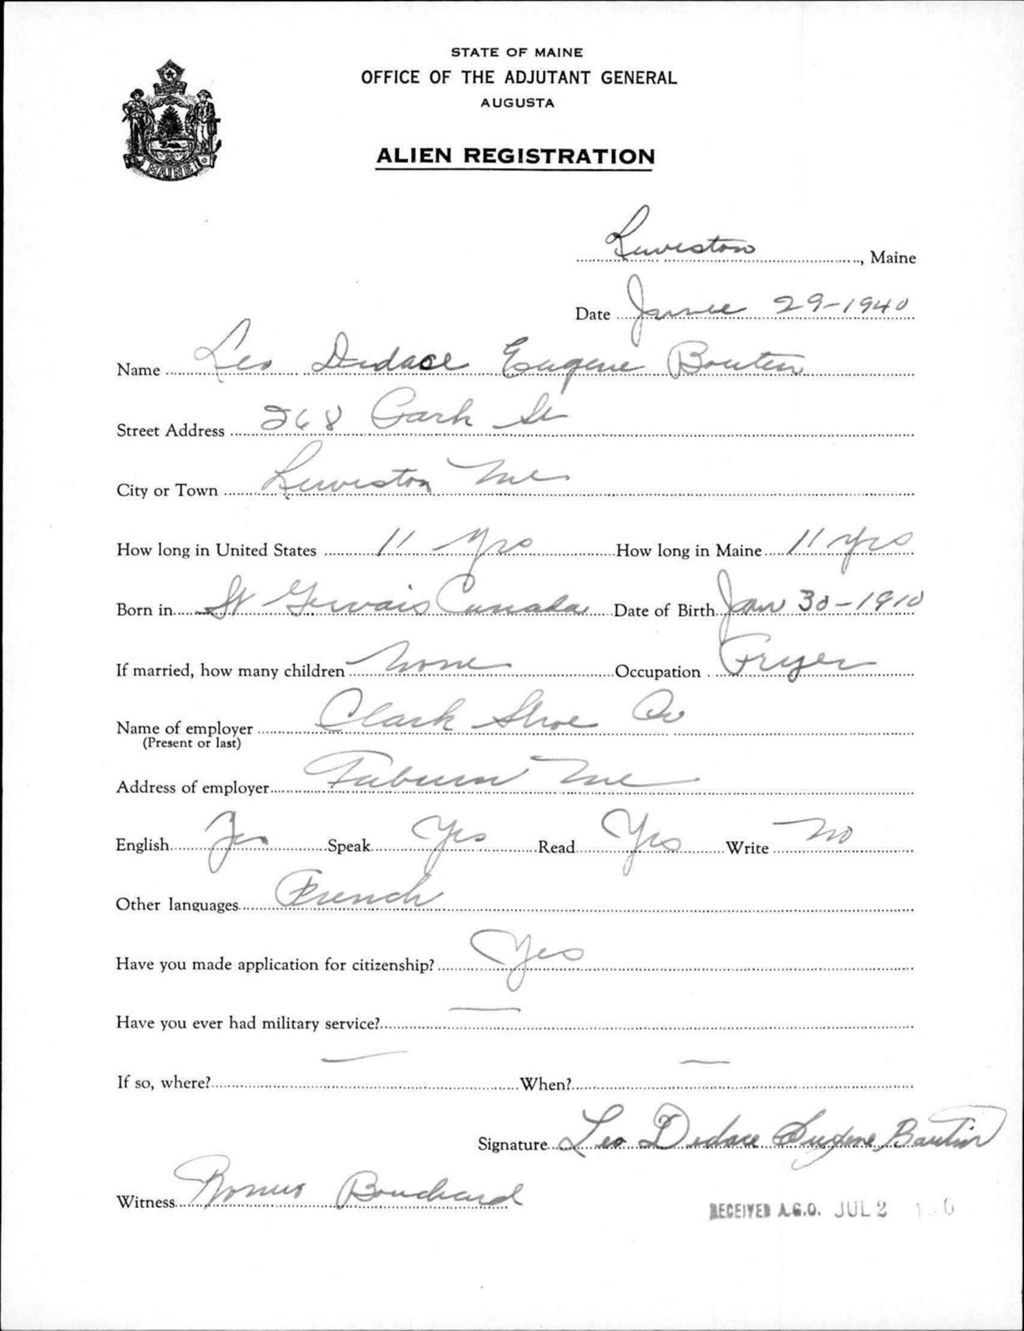 STATE OF MAINE
OFFICE OF THE ADJUTANT GENERAL
AUGUSTA
ALIEN REGISTRATION
MAINE
Lewiston, Maine
Date June 29-1940
Name Leo Didace Eugene Boutin
Street Address 268 Park St
City or Town Lewiston Me
How long in United States 11 yrs How long in Maine 11 yrs
Born in St Gervais Canada Date of Birth Jan 30-1910
If married, how many children None Occupation Fryer
Name of employer Clark Shoe Co
(Present or last)
Address of employer Auburn Me
English Yes Speak Yes Read Yes Write No
Other languages French
Have you made application for citizenship? Yes
Have you ever had military service? —
If so, where? — When? —
Signature Leo Didace Eugene Boutin
Witness Bouchard
RECEIVED A.G.O. JUL 2